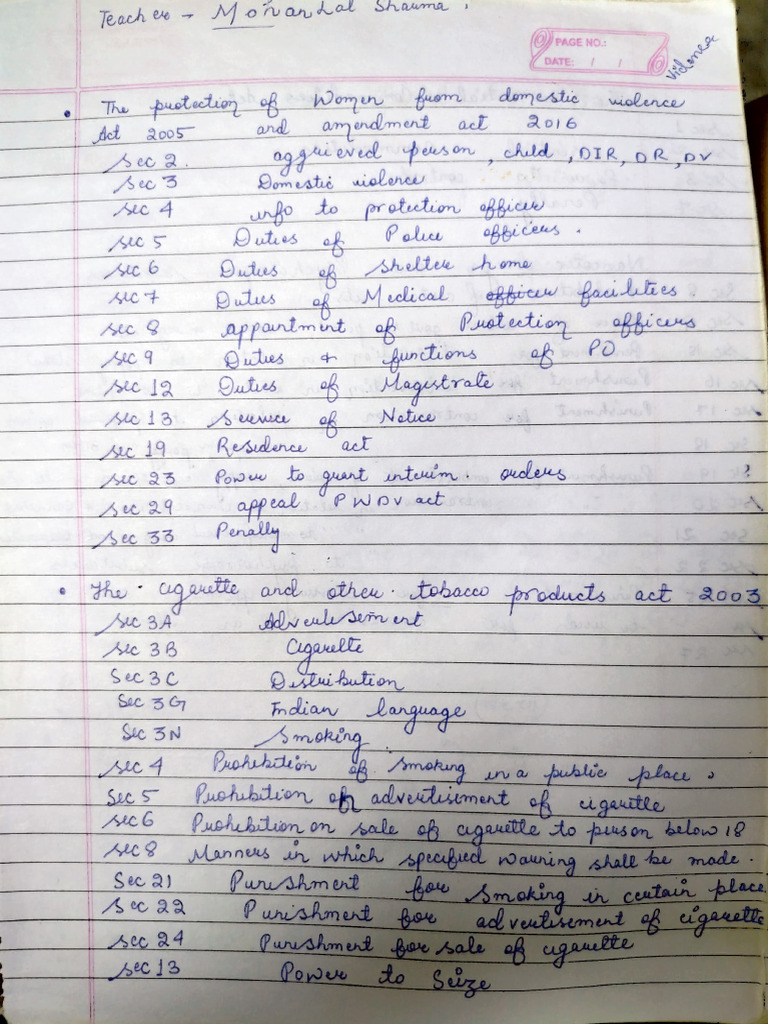 Teacher - Mohan Lal Sharma.
PAGE NO.:
DATE: / /
violence
• The protection of Women from domestic violence
Act 2005 and amendment act 2016
Sec 2. aggrieved person, child, DIR, DR, DV
Sec 3 Domestic violence
Sec 4 info to protection officer
Sec 5 Duties of Police officers.
Sec 6 Duties of shelter home
Sec 7 Duties of Medical officer facilities.
Sec 8 appointment of Protection officers
Sec 9 Duties + functions of PO
Sec 12 Duties of Magistrate
Sec 13 Service of Notice
Sec 19 Residence act
Sec 23 Power to grant interim. orders
Sec 29 appeal PWDV act
Sec 33 Penally
• The cigarette and other tobacco products act 2003
Sec 3A Adverlisement
Sec 3B Cigarette
Sec 3C Distribution
Sec 3G Indian language
Sec 3N Smoking
Sec 4 Prohibition of smoking in a public place.
Sec 5 Prohibition of advertisement of cigarette
Sec 6 Prohibition on sale of cigarette to person below 18
Sec 8 Manners in which specified warning shall be made.
Sec 21 Punishment for smoking in certain place
Sec 22 Punishment for advertisement of cigarette
Sec 24 Punishment for sale of cigarette
Sec 13 Power to Seize